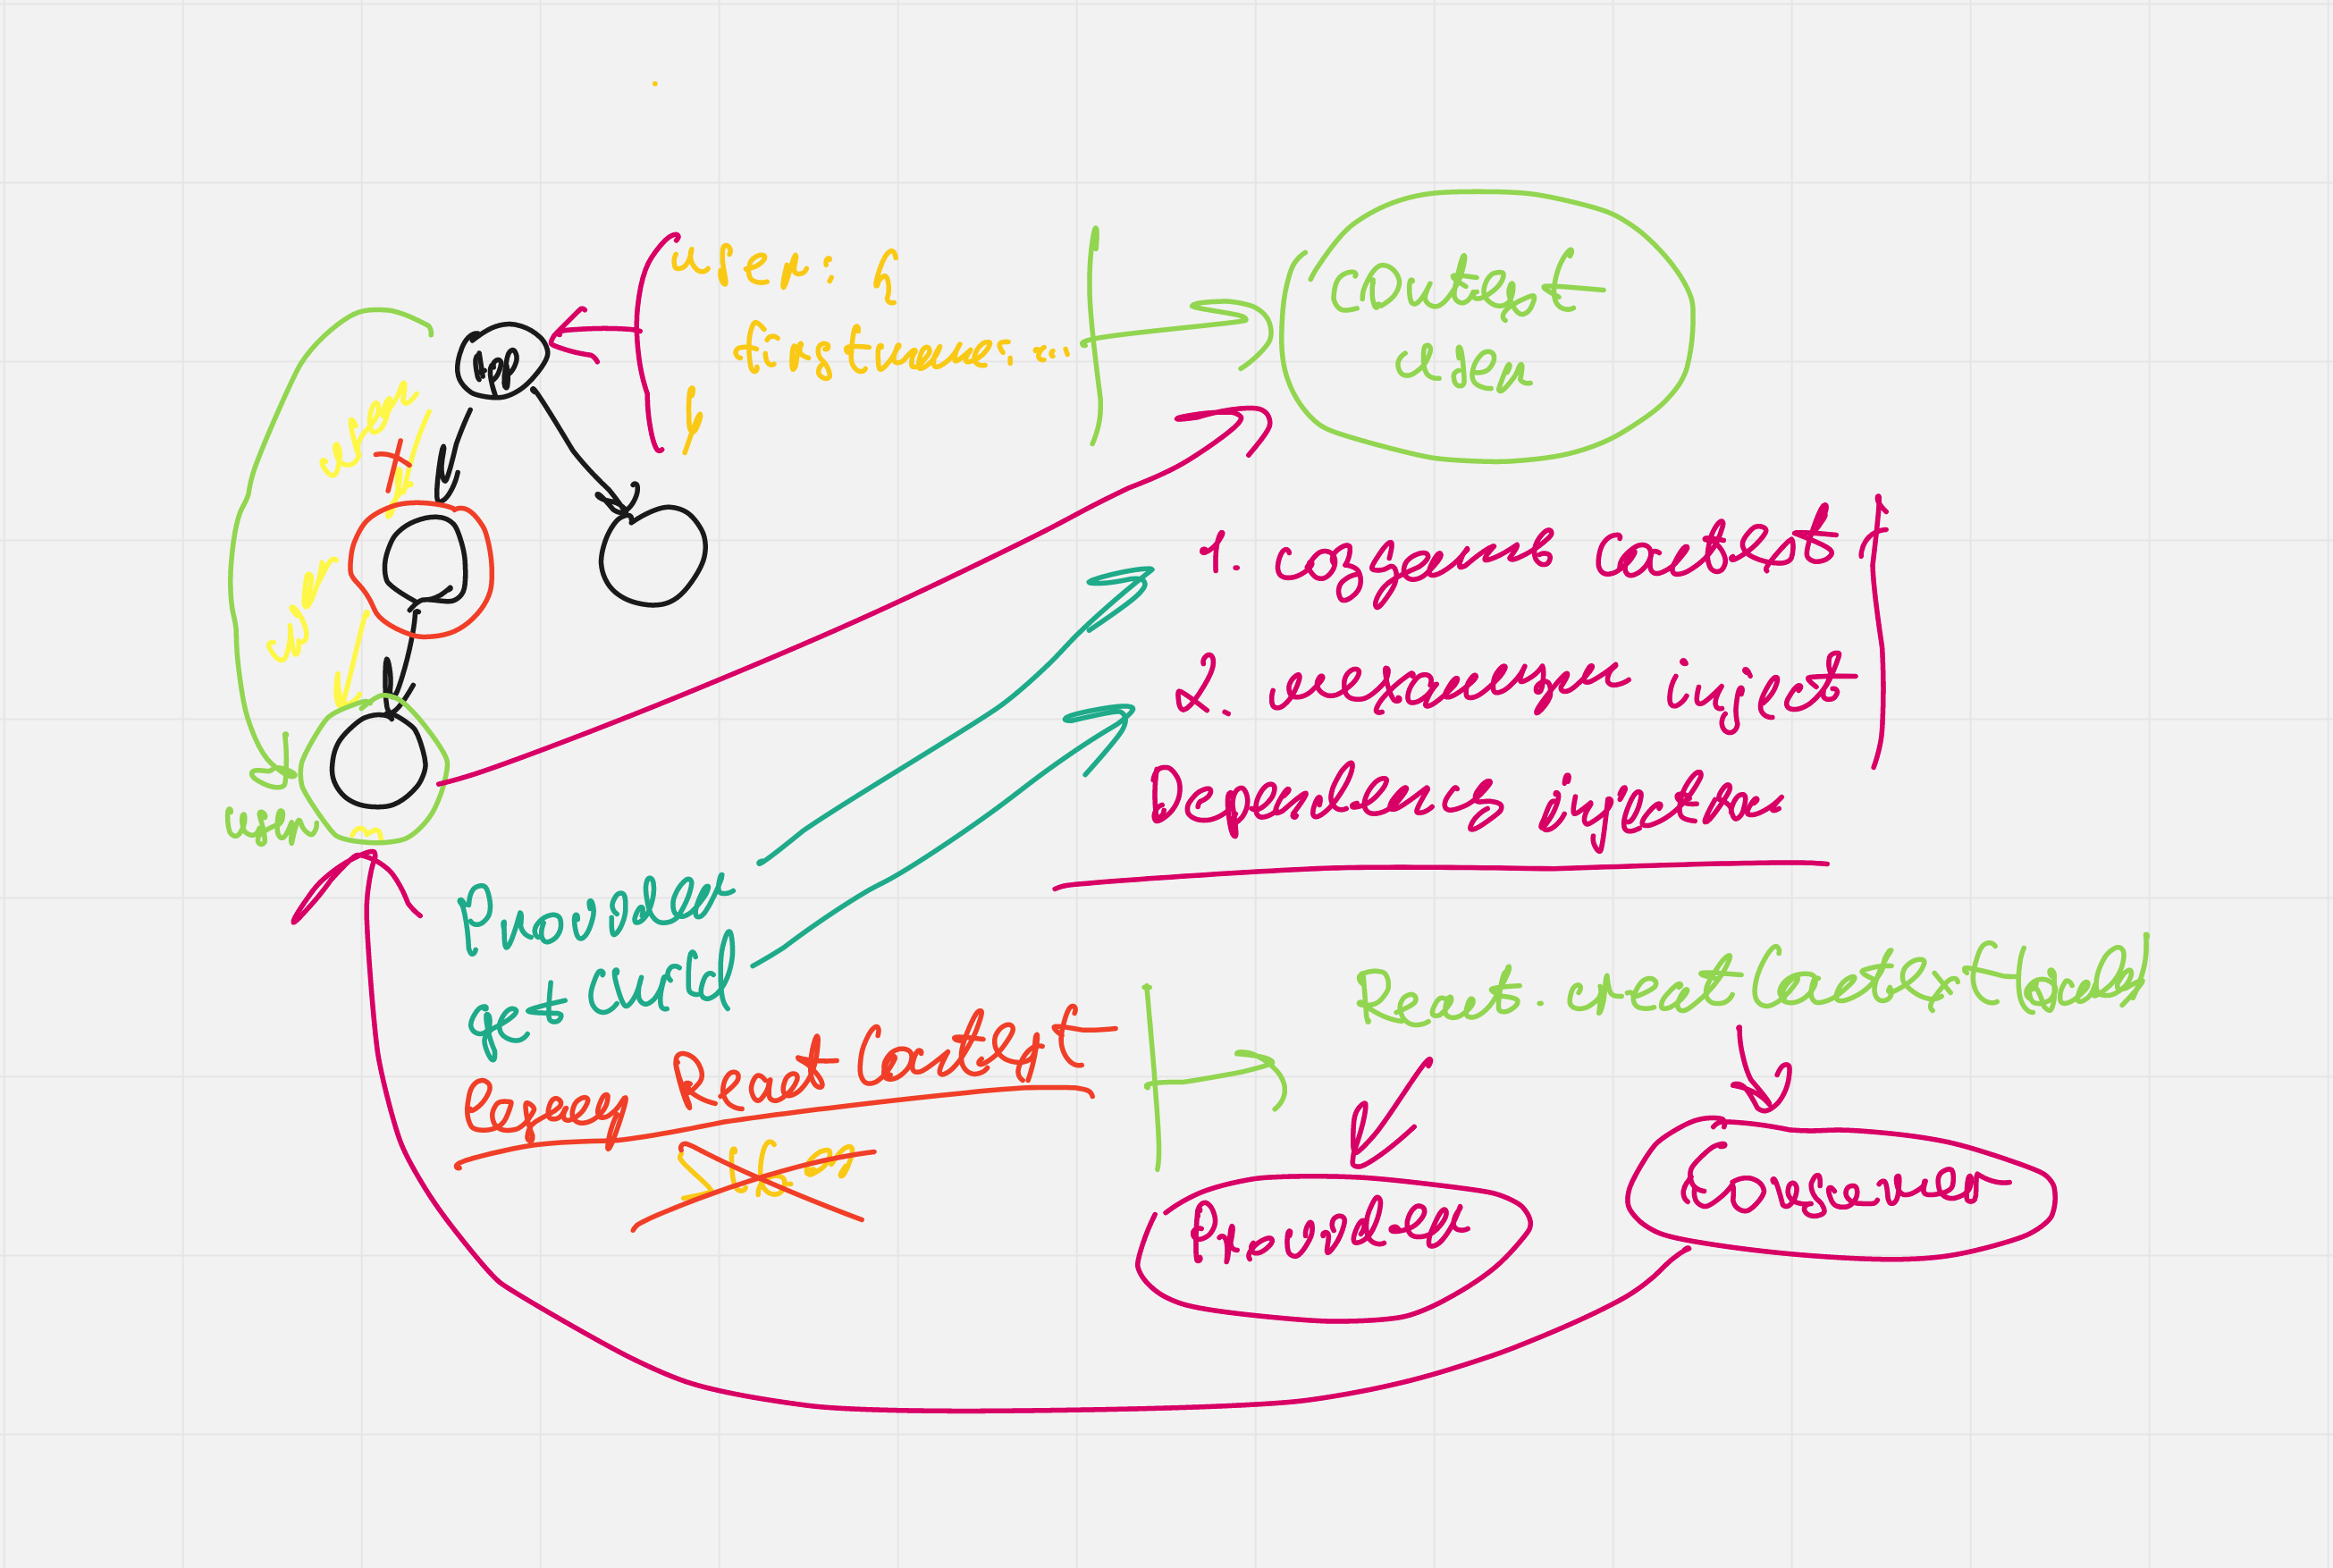 user: {
firstname: ...
}
App
user
user
user
Context
user
1. создание context
2. механизм inject
Dependency injection
Provided
get Child
legacy React Context
React.createContext(val)
Provider
Consumer